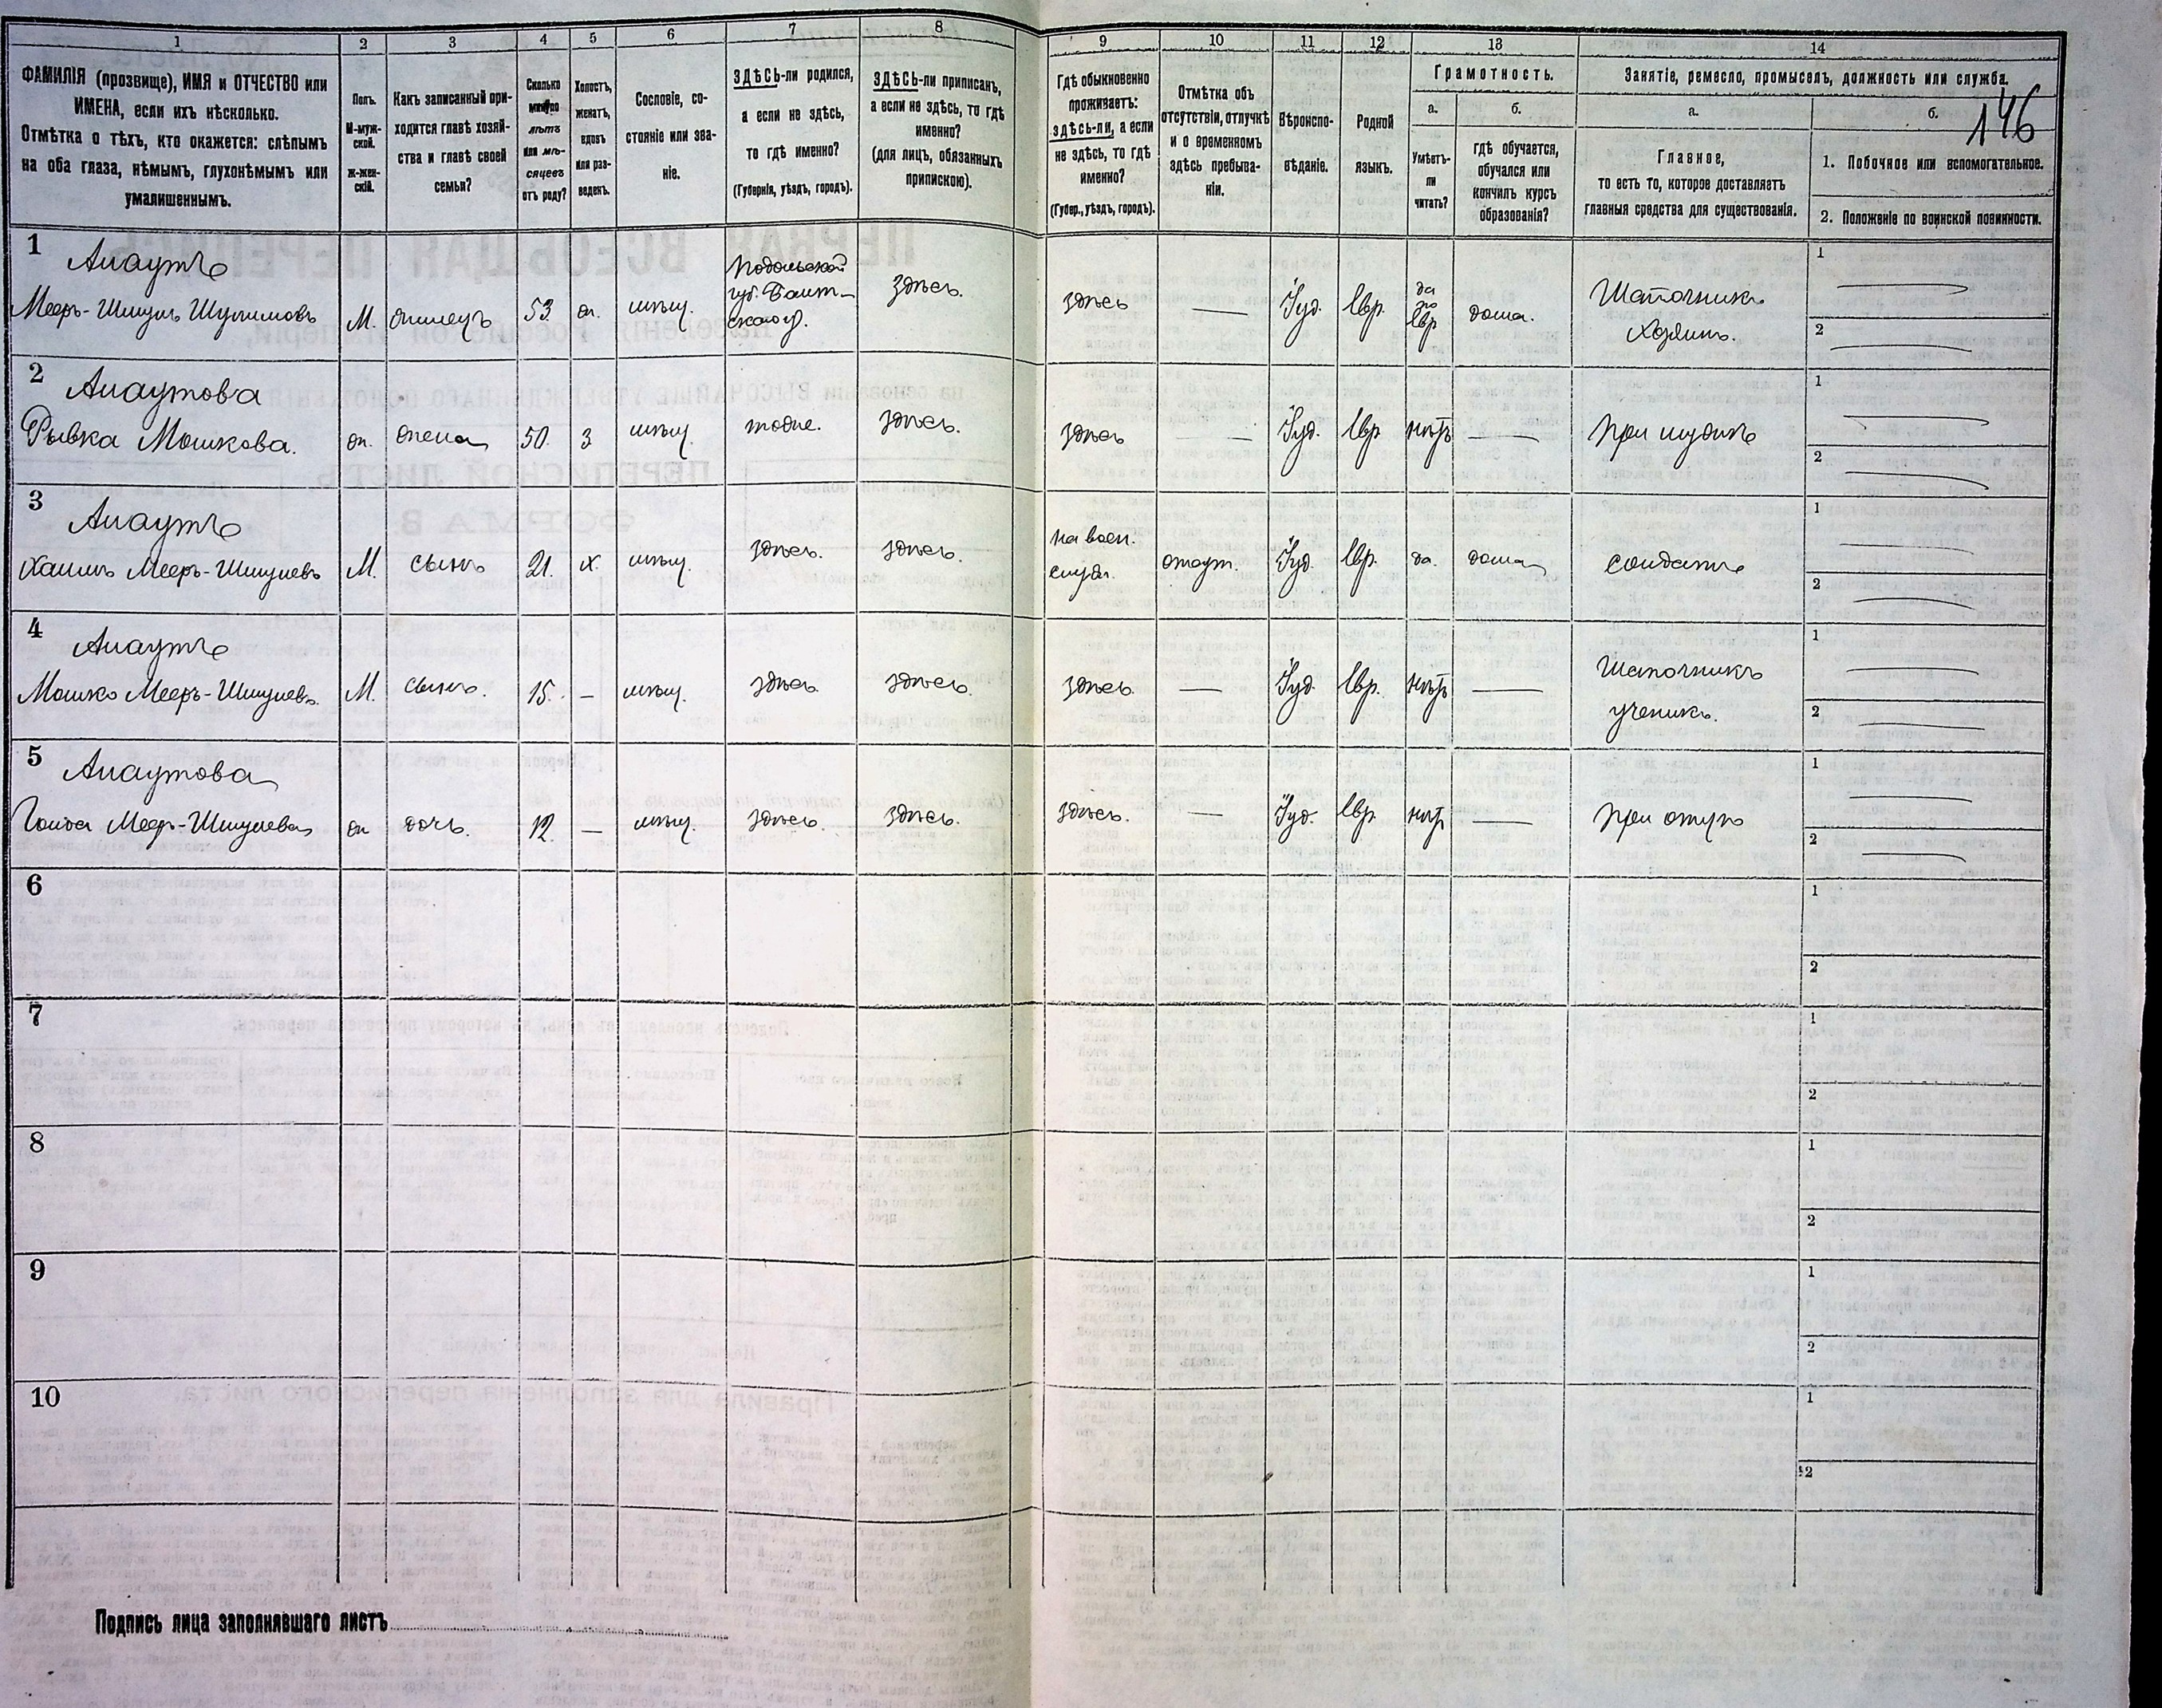 1 2 3 4 5 6 7 8 9 10 11 12 13 14
ФАМИЛІЯ (прозвище), ИМЯ и ОТЧЕСТВО или
ИМЕНА, если ихъ нѣсколько.
Отмѣтка о тѣхъ, кто окажется: слѣпымъ
на оба глаза, нѣмымъ, глухонѣмымъ или
умалишеннымъ.
Полъ.
М-муж-
ской.
Ж-жен-
скій.
Какъ записанный при-
ходится главѣ хозяй-
ства и главѣ своей
семьи?
Сколько
минуло
лѣтъ
или мѣ-
сяцевъ
отъ роду?
Холостъ,
женатъ,
вдовъ
или раз-
веденъ.
Сословіе, со-
стояніе или зва-
ніе.
ЗДѢСЬ-ли родился,
а если не здѣсь,
то гдѣ именно?
(Губернія, уѣздъ, городъ).
ЗДѢСЬ-ли приписанъ,
а если не здѣсь, то гдѣ
именно?
(для лицъ, обязанныхъ
припискою).
Гдѣ обыкновенно
проживаетъ:
здѣсь-ли, а если
не здѣсь, то гдѣ
именно?
(Губер., уѣздъ, городъ).
Отмѣтка объ
отсутствіи, отлучкѣ
и о временномъ
здѣсь пребыва-
ніи.
Вѣроиспо-
вѣданіе.
Родной
языкъ.
Грамотность.
а.
Умѣетъ-
ли
читать?
б.
гдѣ обучается,
обучался или
кончилъ курсъ
образованія?
Занятіе, ремесло, промыселъ, должность или служба.
146
а.
Главное,
то есть то, которое доставляетъ
главныя средства для существованія.
б.
1. Побочное или вспомогательное.
2. Положеніе по воинской повинности.
1
Алаутъ
Мееръ-Шмуль Шулимовъ
М.
53
мѣщ.
Подольской
губ. Балт-
скаго у.
здѣсь.
здѣсь
—
Іуд.
Евр.
да
по
Евр
дома.
Шапочникъ
хозяинъ.
1 —
2 —
2
Алаутова
Рывка Мошкова.
ж.
жена
50.
з
мѣщ.
тоже.
здѣсь.
здѣсь
—
Іуд.
Евр
нѣтъ
—
при мужѣ
1 —
2 —
3
Алаутъ
Хаимъ Мееръ-Шмулевъ
М.
сынъ
21.
х.
мѣщ.
здѣсь.
здѣсь.
на воен.
служ.
отсут.
Іуд.
Евр.
да.
дома
солдатъ
1 —
2 —
4
Алаутъ
Мошко Мееръ-Шмулевъ.
М.
сынъ.
15.
—
мѣщ.
здѣсь.
здѣсь.
здѣсь.
—
Іуд.
Евр.
нѣтъ
—
Шапочникъ
ученикъ.
1 —
2 —
5
Алаутова
Голда Мееръ-Шмулева
ж
дочь.
12.
—
мѣщ.
здѣсь.
здѣсь.
здѣсь.
—
Іуд.
Евр.
нѣт
—
при отцѣ
1 —
2 —
6
1
2
7
1
2
8
1
2
9
1
2
10
1
2
Подпись лица заполнявшаго листъ